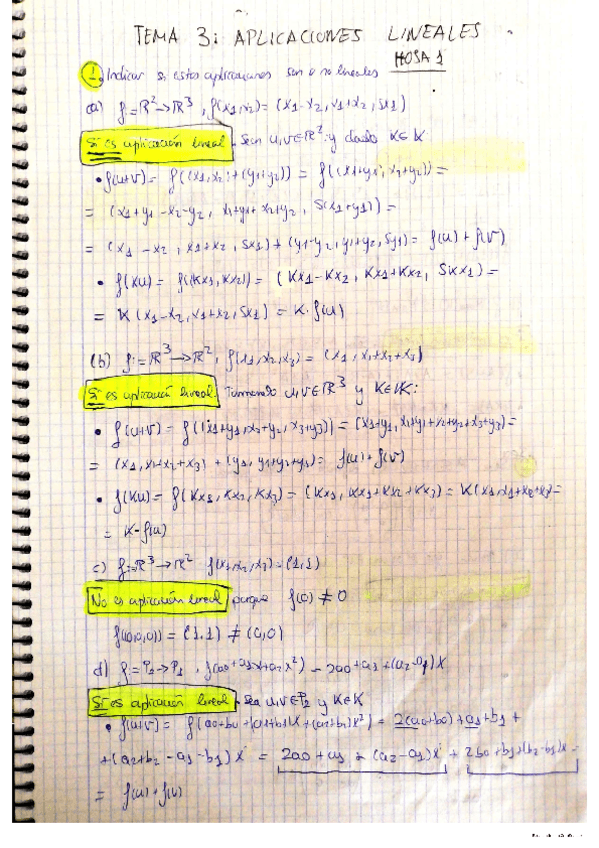 TEMA 3: APLICACIONES LINEALES
HOJA 1
1. Indicar si estas aplicaciones son o no lineales
a) f:=R²→R³, f(x1,x2)=(x1-x2, x1+x2, 5x1)
Sí es aplicación lineal. Sean u,v∈R² y dado K∈K
• f(u+v)= f((x1,x2)+(y1+y2)) = f((x1+y1, x2+y2)) =
= (x1+y1-x2-y2, x1+y1+x2+y2, 5(x1+y1)) =
= (x1-x2, x1+x2, 5x1)+(y1-y2, y1+y2, 5y1)= f(u)+f(v)
• f(Ku)= f((Kx1, Kx2))= (Kx1-Kx2, Kx1+Kx2, 5Kx1) =
= K(x1-x2, x1+x2, 5x1) = K·f(u)
(b) f:=R³→R², f(x1,x2,x3) = (x1, x1+x2+x3)
Sí es aplicación lineal. Tomando u,v∈R³ y K∈K:
• f(u+v)= f((x1+y1, x2+y2, x3+y3)) = (x1+y1, x1+y1+x2+y2+x3+y3)=
= (x1, x1+x2+x3) + (y1, y1+y2+y3)= f(u)+f(v)
• f(Ku)= f(Kx1, Kx2, Kx3) = (Kx1, Kx1+Kx2+Kx3)= K(x1, x1+x2+x3)=
= K·f(u)
c) f:=R³→R² f(x1,x2,x3)=(1,1)
No es aplicación lineal, porque f(0)≠0
f((0,0,0)) = (1,1) ≠ (0,0)
d) f:=P2→P1, f(a0+a1x+a2x²) = 2a0+a1+(a2-a1)x
Sí es aplicación lineal. Sea u,v∈P2 y K∈K
• f(u+v)= f(a0+b0+(a1+b1)x+(a2+b2)x²) = 2(a0+b0)+a1+b1+
+(a2+b2-a1-b1)x = 2a0+a1+(a2-a1)x + 2b0+b1+(b2-b1)x =
= f(u)+f(v)